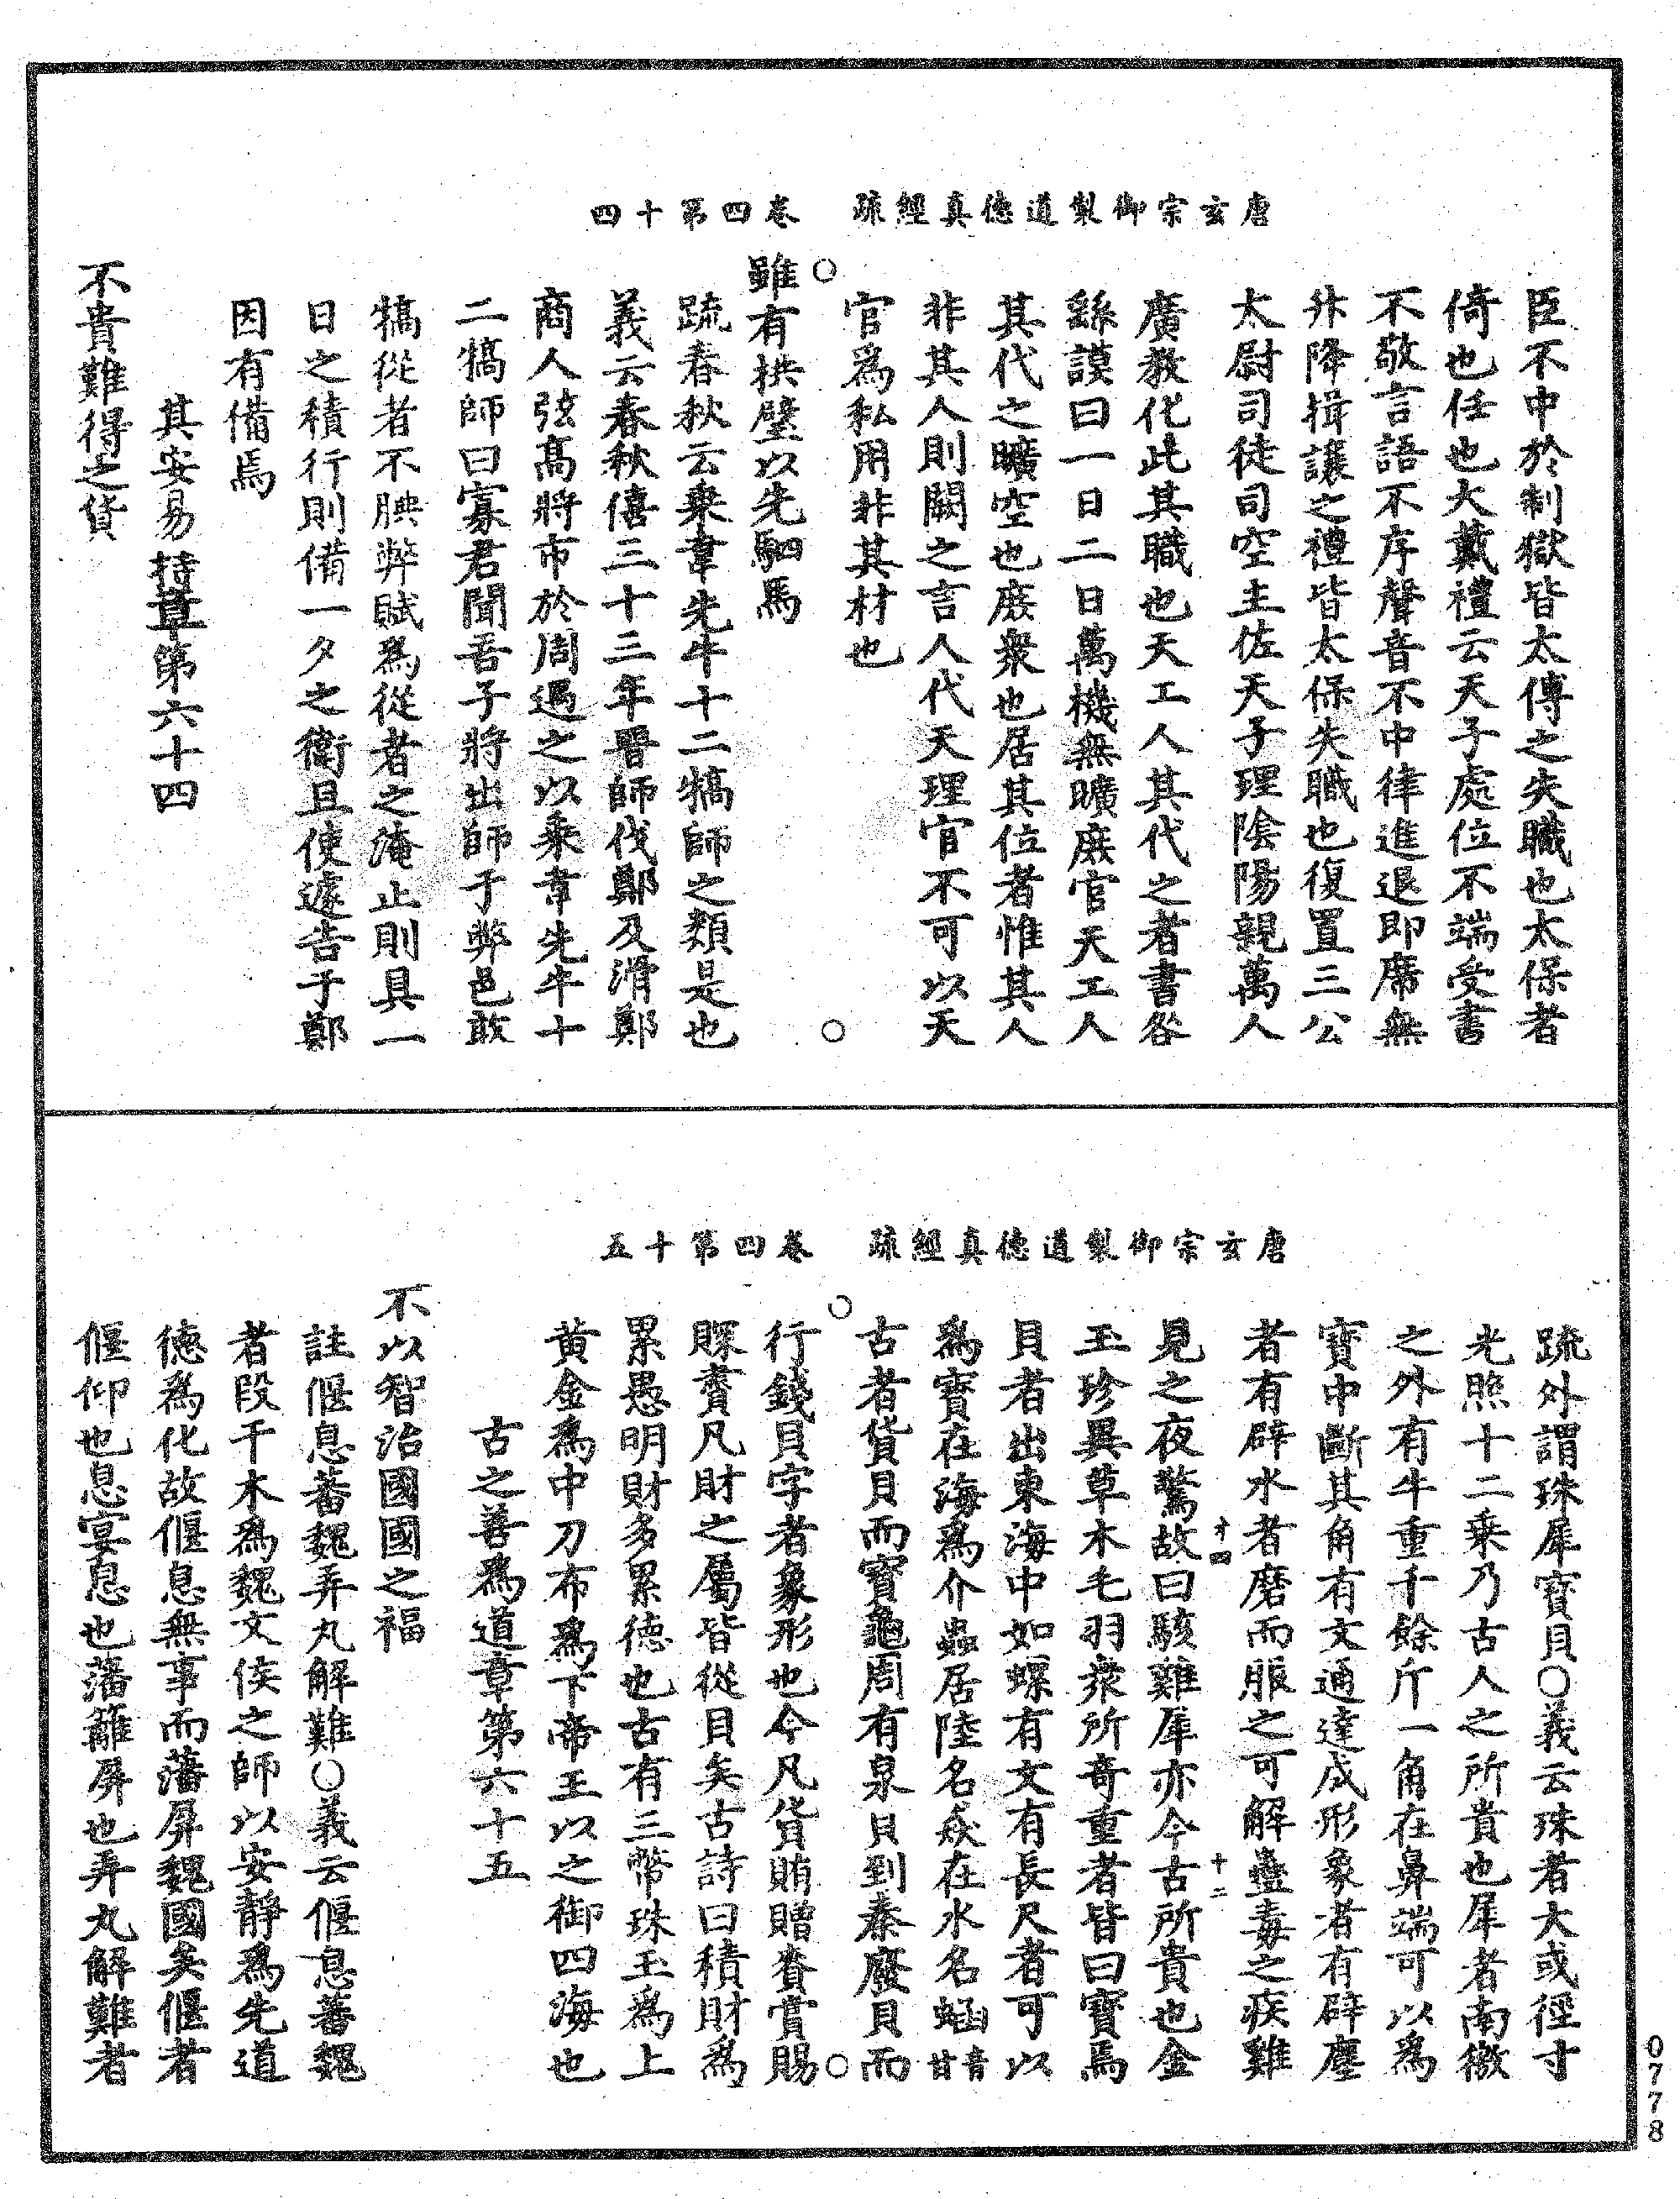 唐玄宗御製道德真經疏　卷四第十四
臣不中於制獄皆太傅之失職也太保者
倚也任也大戴禮云天子處位不端受書
不敬言語不序聲音不中律進退即席無
升降揖讓之禮皆太保失職也復置三公
太尉司徒司空主佐天子理陰陽親萬人
廣教化此其職也天工人其代之者書咎
繇謨曰一日二日萬機無曠庶官天工人
其代之曠空也庶衆也居其位者惟其人
非其人則闕之言人代天理官不可以天
官爲私用非其材也
○雖有拱璧以先駟馬○
疏春秋云乘韋先牛十二犒師之類是也
義云春秋僖三十三年晉師伐鄭及滑鄭
商人弦高將市於周遇之以乘韋先牛十
二犒師曰寡君聞吾子將出師于弊邑敢
犒從者不腆弊賦爲從者之淹止則具一
日之積行則備一夕之衛且使遽告于鄭
因有備焉
其安易持章第六十四
不貴難得之貨
唐玄宗御製道德真經疏　卷四第十五
疏外謂珠犀寶貝○義云珠者大或徑寸
光照十二乘乃古人之所貴也犀者南徼
之外有牛重千餘斤一角在鼻端可以爲
寶中斷其角有文通達成形象者有辟塵
者有辟水者磨而服之可解蠱毒之疾雞
見之夜驚故曰駭雞犀亦今古所貴也金
十四　十二
玉珍異草木毛羽衆所奇重者皆曰寶焉
貝者出東海中如螺有文有長尺者可以
爲寶在海爲介蟲居陸名猋在水名蜬音甘
古者貨貝而寶龜周有泉貝到秦廢貝而
○行錢貝字者象形也今凡貨賄贈賚賞賜○
賝賮凡財之屬皆從貝矣古詩曰積財爲
累愚明財多累德也古有三幣珠玉爲上
黄金爲中刀布爲下帝王以之御四海也
古之善爲道章第六十五
不以智治國國之福
註偃息蕃魏弄丸解難○義云偃息蕃魏
者段干木爲魏文侯之師以安靜爲先道
德爲化故偃息無事而藩屏魏國矣偃者
偃仰也息宴息也藩籬屏也弄丸解難者
0778